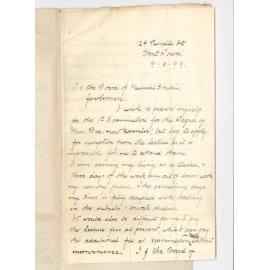 124 Rundle St
Kent Town.
9-10-99.
To the Board of Musical Studies,
Gentlemen,
I wish to present myself
for the 1st Examination for the Degree of
Mus. Bac. next November but beg to apply
for exemption from the lectures, as it is
impossible for me to attend them.
I am earning my living as a teacher,
three days of the week am out of town with
my country pupils, & the remaining days
my time is fully occupied with teaching
in the suburbs, & private studies.
It would also be difficult for me to pay
the lecture fees at present while I can pay
the additional fee at examination without
inconvenience. If the Board of